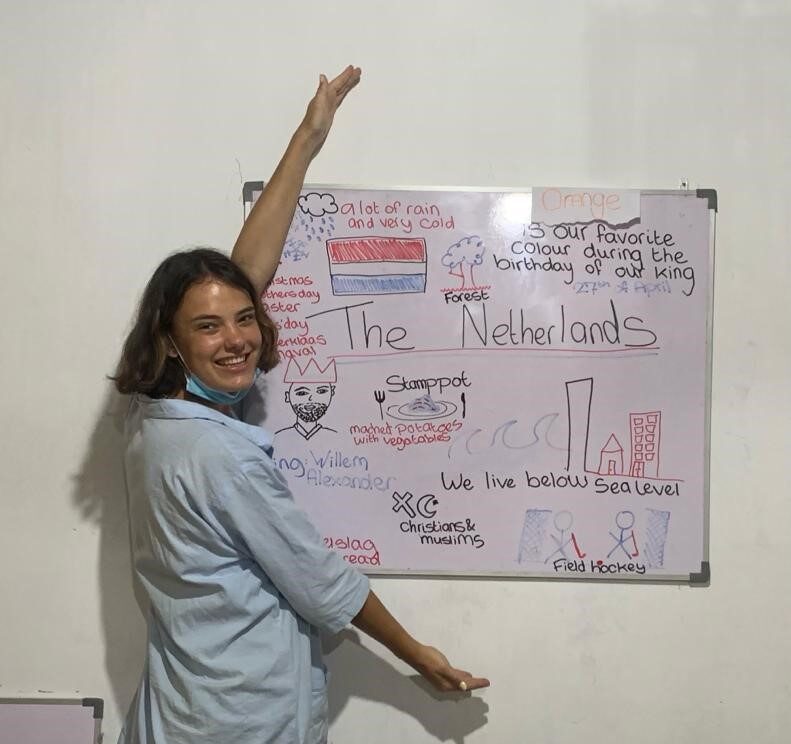 a lot of rain
and very cold
Orange
is our favorite
colour during the
birthday of our king
27th of April
Forest
The Netherlands
Stamppot
mached potatoes
with vegetables
Willem
Alexander
We live below sea level
Christians &
muslims
Field hockey